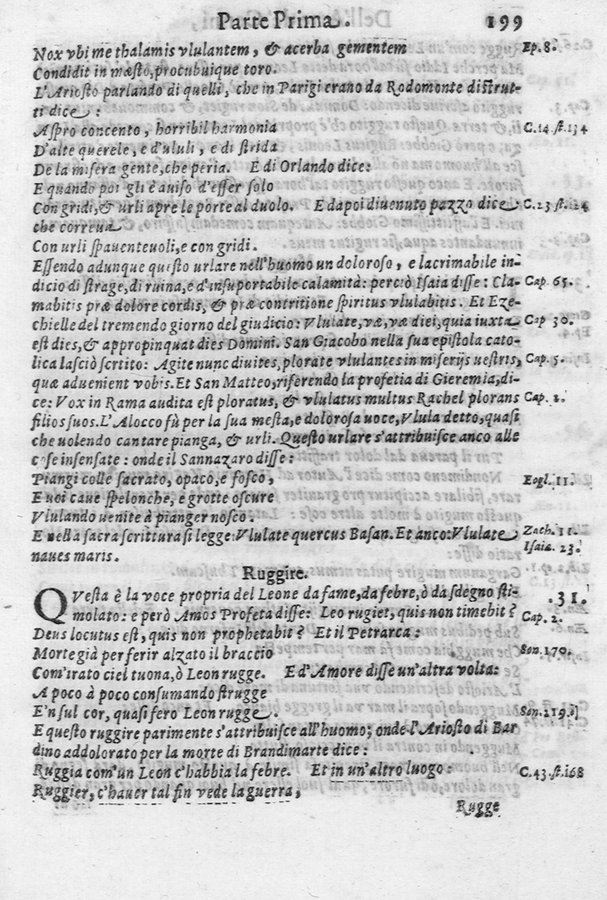 Parte Prima. 199
Nox vbi me thalamis vlulantem, & acerba gementem Ep. 8.
Condidit in mæsto, procubuique toro.
L'Ariosto parlando di quelli, che in Parigi erano da Rodomonte distrut-
ti dice:
Aspro concento, horribil harmonia C. 14. st. 134
D'alte querele, e d'ululi, e di strida
De la misera gente, che peria. E di Orlando dice:
E quando poi gli è auiso d'esser solo
Con gridi, & urli apre le porte al duolo. E dapoi diuenuto pazzo dice C. 23. st. 124
che correua
Con urli spauenteuoli, e con gridi.
Essendo adunque questo urlare nell'huomo un doloroso, e lacrimabile in-
dicio di strage, di ruina, e d'insuportabile calamità: perciò Isaia disse: Cla- Cap. 65.
mabitis præ dolore cordis, & præ contritione spiritus vlulabitis. Et Eze-
chielle del tremendo giorno del giudicio: Vlulate, væ, væ diei, quia iuxta Cap 30.
est dies, & appropinquat dies Domini. San Giacobo nella sua epistola cato-
lica lasciò scrtito: Agite nunc diuites, plorate vlulantes in miserijs uestris, Cap. 5.
quæ aduenient vobis. Et San Matteo, riferendo la profetia di Gieremia, di-
ce: Vox in Rama audita est ploratus, & vlulatus multus Rachel plorans Cap. 2.
filios suos. L'Alocco fù per la sua mesta, e dolorosa uoce, Vlula detto, quasi
che uolendo cantare pianga, & urli. Questo urlare s'attribuisce anco alle
cose insensate: onde il Sannazaro disse:
Piangi colle sacrato, opaco, e fosco, Eogl. 11.
E uoi caue spelonche, e grotte oscure
Vlulando uenite à pianger nosco.
E nella sacra scrittura si legge: Vlulate quercus Basan. Et anco: Vlulate Zach. 11.
naues maris. Isaia. 23.
Ruggire.
QVesta è la voce propria del Leone da fame, da febre, ò da sdegno sti- .31.
molato: e però Amos Profeta disse: Leo rugiet, quis non timebit? Cap. 2.
Deus locutus est, quis non prophetabit? Et il Petrarca:
Morte già per ferir alzato il braccio Son. 170.
Com'irato ciel tuona, ò Leon rugge. E d'Amore disse un'altra volta:
A poco à poco consumando strugge
E'n sul cor, quasi fero Leon rugge. Son. 219.
E questo ruggire parimente s'attribuisce all'huomo; onde l'Ariosto di Bar
dino addolorato per la morte di Brandimarte dice:
Ruggia com'un Leon c'habbia la febre. Et in un'altro luogo: C. 43. st. 168
Ruggier, c'hauer tal fin vede la guerra,
Rugge